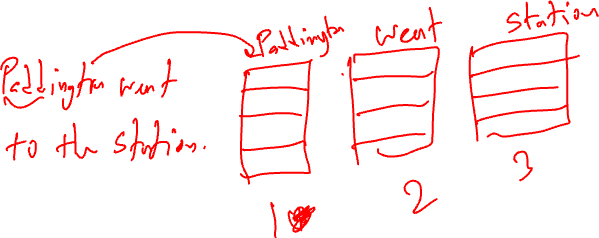 Paddington went
to the station.
Paddington went station
1 2 3